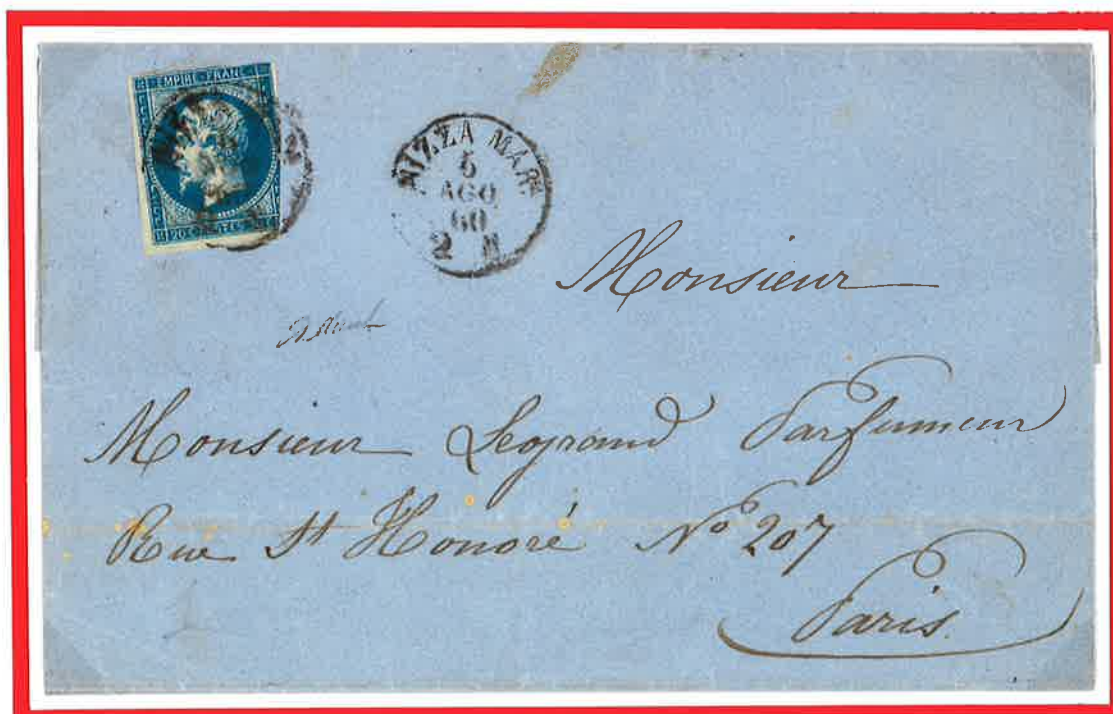 EMPIRE FRANC
20 C
NIZZA MAR
5
AGO
60
2
Monsieur
Monsieur Legrand Parfumeur
Rue St Honoré No 207
Paris